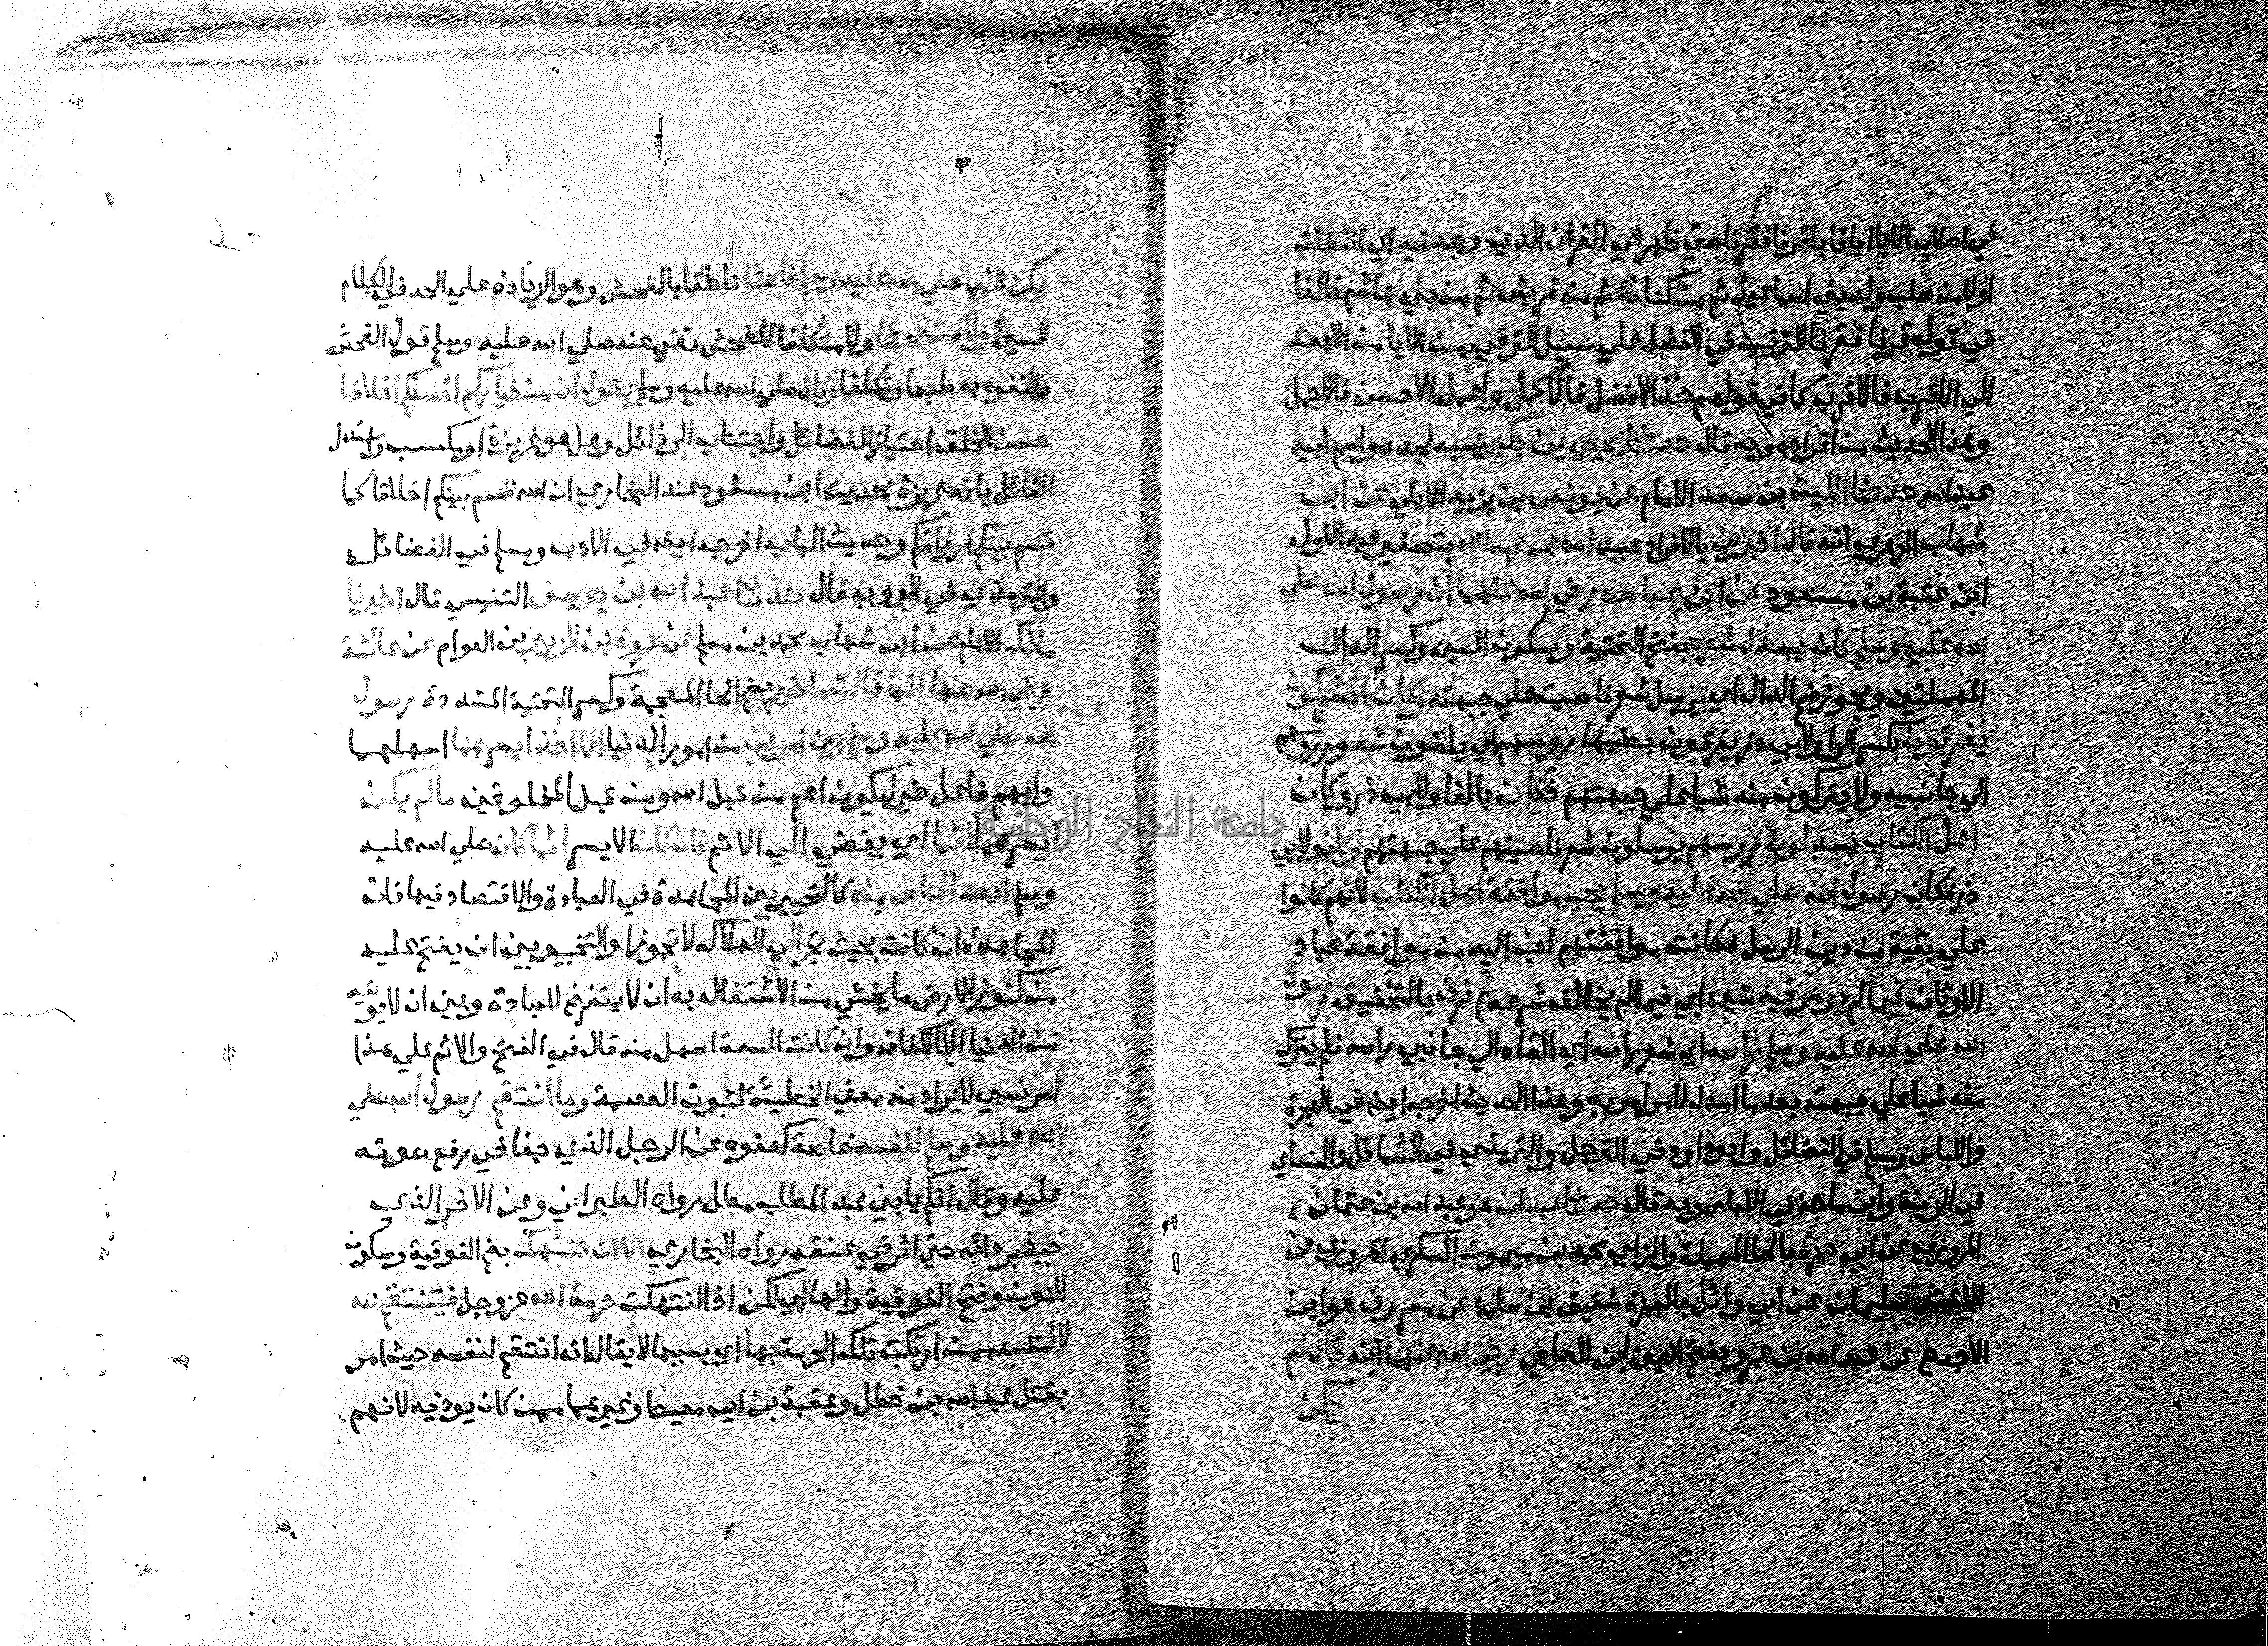 في اصلاب الابا ابا فابا قرنا فقرنا حتي ظهر في القرن الذي وجد فيه اي انتقلت
اولا من صلب ولد بني اسماعيل ثم من كنانة ثم من قريش ثم من بني هاشم فالفا
في قوله قرنا فقرنا للترتيب في الفضل علي سبيل الترقي من الابا من الابعد
الي الاقرب فالاقرب كما في قولهم خذ الافضل فالاكمل واعمل الاحسن فالاجمل
وهذا الحديث من افراده وبه قال حدثنا يحيي بن بكير نسبه لجده واسم ابيه
عبد الله حدثنا الليث بن سعد الامام عن يونس بن يزيد الايلي عن ابن
شهاب الزهري انه قال اخبرني بالافراد عبيد الله بن عبد الله بتصغير عبد الاول
ابن عتبة بن مسعود عن ابن عباس رضي الله عنهما ان رسول الله صلي
الله عليه وسلم كان يسدل شعره بفتح التحتية وسكون السين وكسر الدال
المهملتين ويجوز ضم الدال اي يرسل شعر ناصيته علي جبهته وكان المشركون
يفرقون بكسر الرا ولابي ذر يفرقون بضمها روسهم اي يلقون شعور روسهم
الي جانبيه ولا يتركون منه شيا علي جبهتهم فكان بالفا ولابي ذر وكان
اهل الكتاب يسدلون روسهم يرسلون شعر ناصيتهم علي جبهتهم وكانو لابي
ذر فكان رسول الله صلي الله عليه وسلم يحب موافقة اهل الكتاب لانهم كانوا
علي بقية من دين الرسل فكانت موافقتهم احب اليه من موافقة عباد
الاوثان فيما لم يومر فيه بشي اي فيما لم يخالف شرعه ثم فرق بالتخفيف رسول
الله صلي الله عليه وسلم راسه اي شعر راسه اي القاه الي جانبي راسه فلم يترك
منه شيا علي جبهته بعد ما اسدل لامر امر به وهذا الحديث اخرجه ايضا في الهجرة
واللباس ومسلم في الفضائل وابو داود في الترجل والترمذي في الشمائل والنساي
في الزينة وابن ماجة في اللباس وبه قال حدثنا عبدان هو عبد الله بن عثمان
المروزي عن ابي حمزة بالحا المهملة والزاي محمد بن ميمون السكري المروزي عن
الاعمش سليمان عن ابي وائل بالهمزة شقيق بن سلمة عن مسروق هو ابن
الاجدع عن عبد الله بن عمرو بفتح العين ابن العاص رضي الله عنهما انه قال لم
يكن
يكن النبي صلي الله عليه وسلم فاحشا ناطقا بالفحش وهو الزيادة علي الحد في الكلام
السيئ ولا متفحشا ولا متكلفا للفحش نفي عنه صلي الله عليه وسلم قول الفحش
والتفوه به طبعا وتكلفا وكان صلي الله عليه وسلم يقول ان من خياركم احسنكم اخلاقا
حسن الخلق اختيار الفضائل واجتناب الرذائل وهل هو غريزة او يكتسب واستدل
القائل بانه غريزة بحديث ابن مسعود عند البخاري ان الله قسم بينكم اخلاقا كما
قسم بينكم ارزاقكم وحديث الباب اخرجه ايضا في الادب ومسلم في الفضائل
والترمذي في البر وبه قال حدثنا عبد الله بن يوسف التنيسي قال اخبرنا
مالك الامام عن ابن شهاب محمد بن مسلم عن عروة بن الزبير بن العوام عن عائشة
رضي الله عنها انها قالت ما خير بضم الخا المعجمة وكسر التحتية المشددة رسول
الله صلي الله عليه وسلم بين امرين من امور الدنيا الا اخذ ايسرهما اسهلهما
وابهم فاعل خير ليكون اعم من قبل الله ومن قبل المخلوقين ما لم يكن
ايسرهما اثما اي يفضي الي الاثم فان كان الايسر اثما كان صلي الله عليه
وسلم ابعد الناس منه كالتخيير بين المجاهدة في العبادة والاقتصاد فيها فان
المجاهدة ان كانت بحيث تجر الي الهلاك لا تجوز او التخيير بين ان يفتح عليه
من كنوز الارض ما يخشي من الاشتغال به ان لا يتفرغ للعبادة وبين ان لا يوتيه
من الدنيا الا الكفاف وان كانت السعة اسهل منه قال في الفتح والاثم علي هذا
امر نسبي لا يراد منه معني الخطيئة لثبوت العصمة وما انتقم رسول الله صلي
الله عليه وسلم لنفسه خاصة كعفوه عن الرجل الذي جفا في رفع صوته
عليه وقال انكم يا بني عبد المطلب مطل رواه الطبراني وعن الاخر الذي
جبذ بردائه حتي اثر في عنقه رواه البخاري الا ان تنتهك بضم الفوقية وسكون
النون وفتح الفوقية والها اي لكن اذا انتهكت حرمة الله عز وجل فينتقم لله
لا لنفسه ممن ارتكب تلك الحرمة بها اي بسببها لا يقال انه انتقم لنفسه حيث امر
بقتل عبد الله بن خطل وعقبة بن ابي معيط وغيرهما ممن كان يوذيه لانهم
جامعة النجاح الوطنية